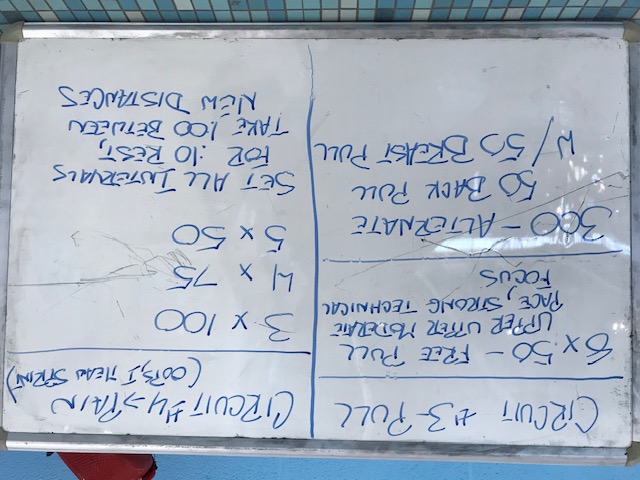 CIRCUIT #3 - PULL
8 x 50 - FREE PULL
UPPER UPPER MODERATE
PACE, STRONG TECHNICAL
FOCUS
300 - ALTERNATE
50 BACK PULL
W/ 50 BREAST PULL
CIRCUIT #4 → PAIN
(OOPS, I MEAN SPRINT)
3 x 100
4 x 75
5 x 50
SET ALL INTERVALS
FOR :10 REST,
TAKE 1:00 BETWEEN
NEW DISTANCES